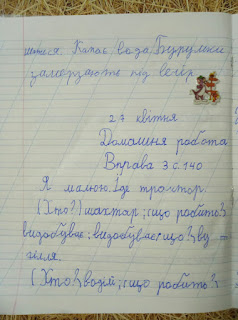 шитися. Капає вода. Бурульки
замерзають під вечір
27 квітня
Домашня робота
Вправа 3 с.140
Я малюю. Їде трактор.
(Хто?) шахтар; (що робить?)
видобуває; видобуває (що?) ву-
гілля.
(Хто?) водій; (що робить?)